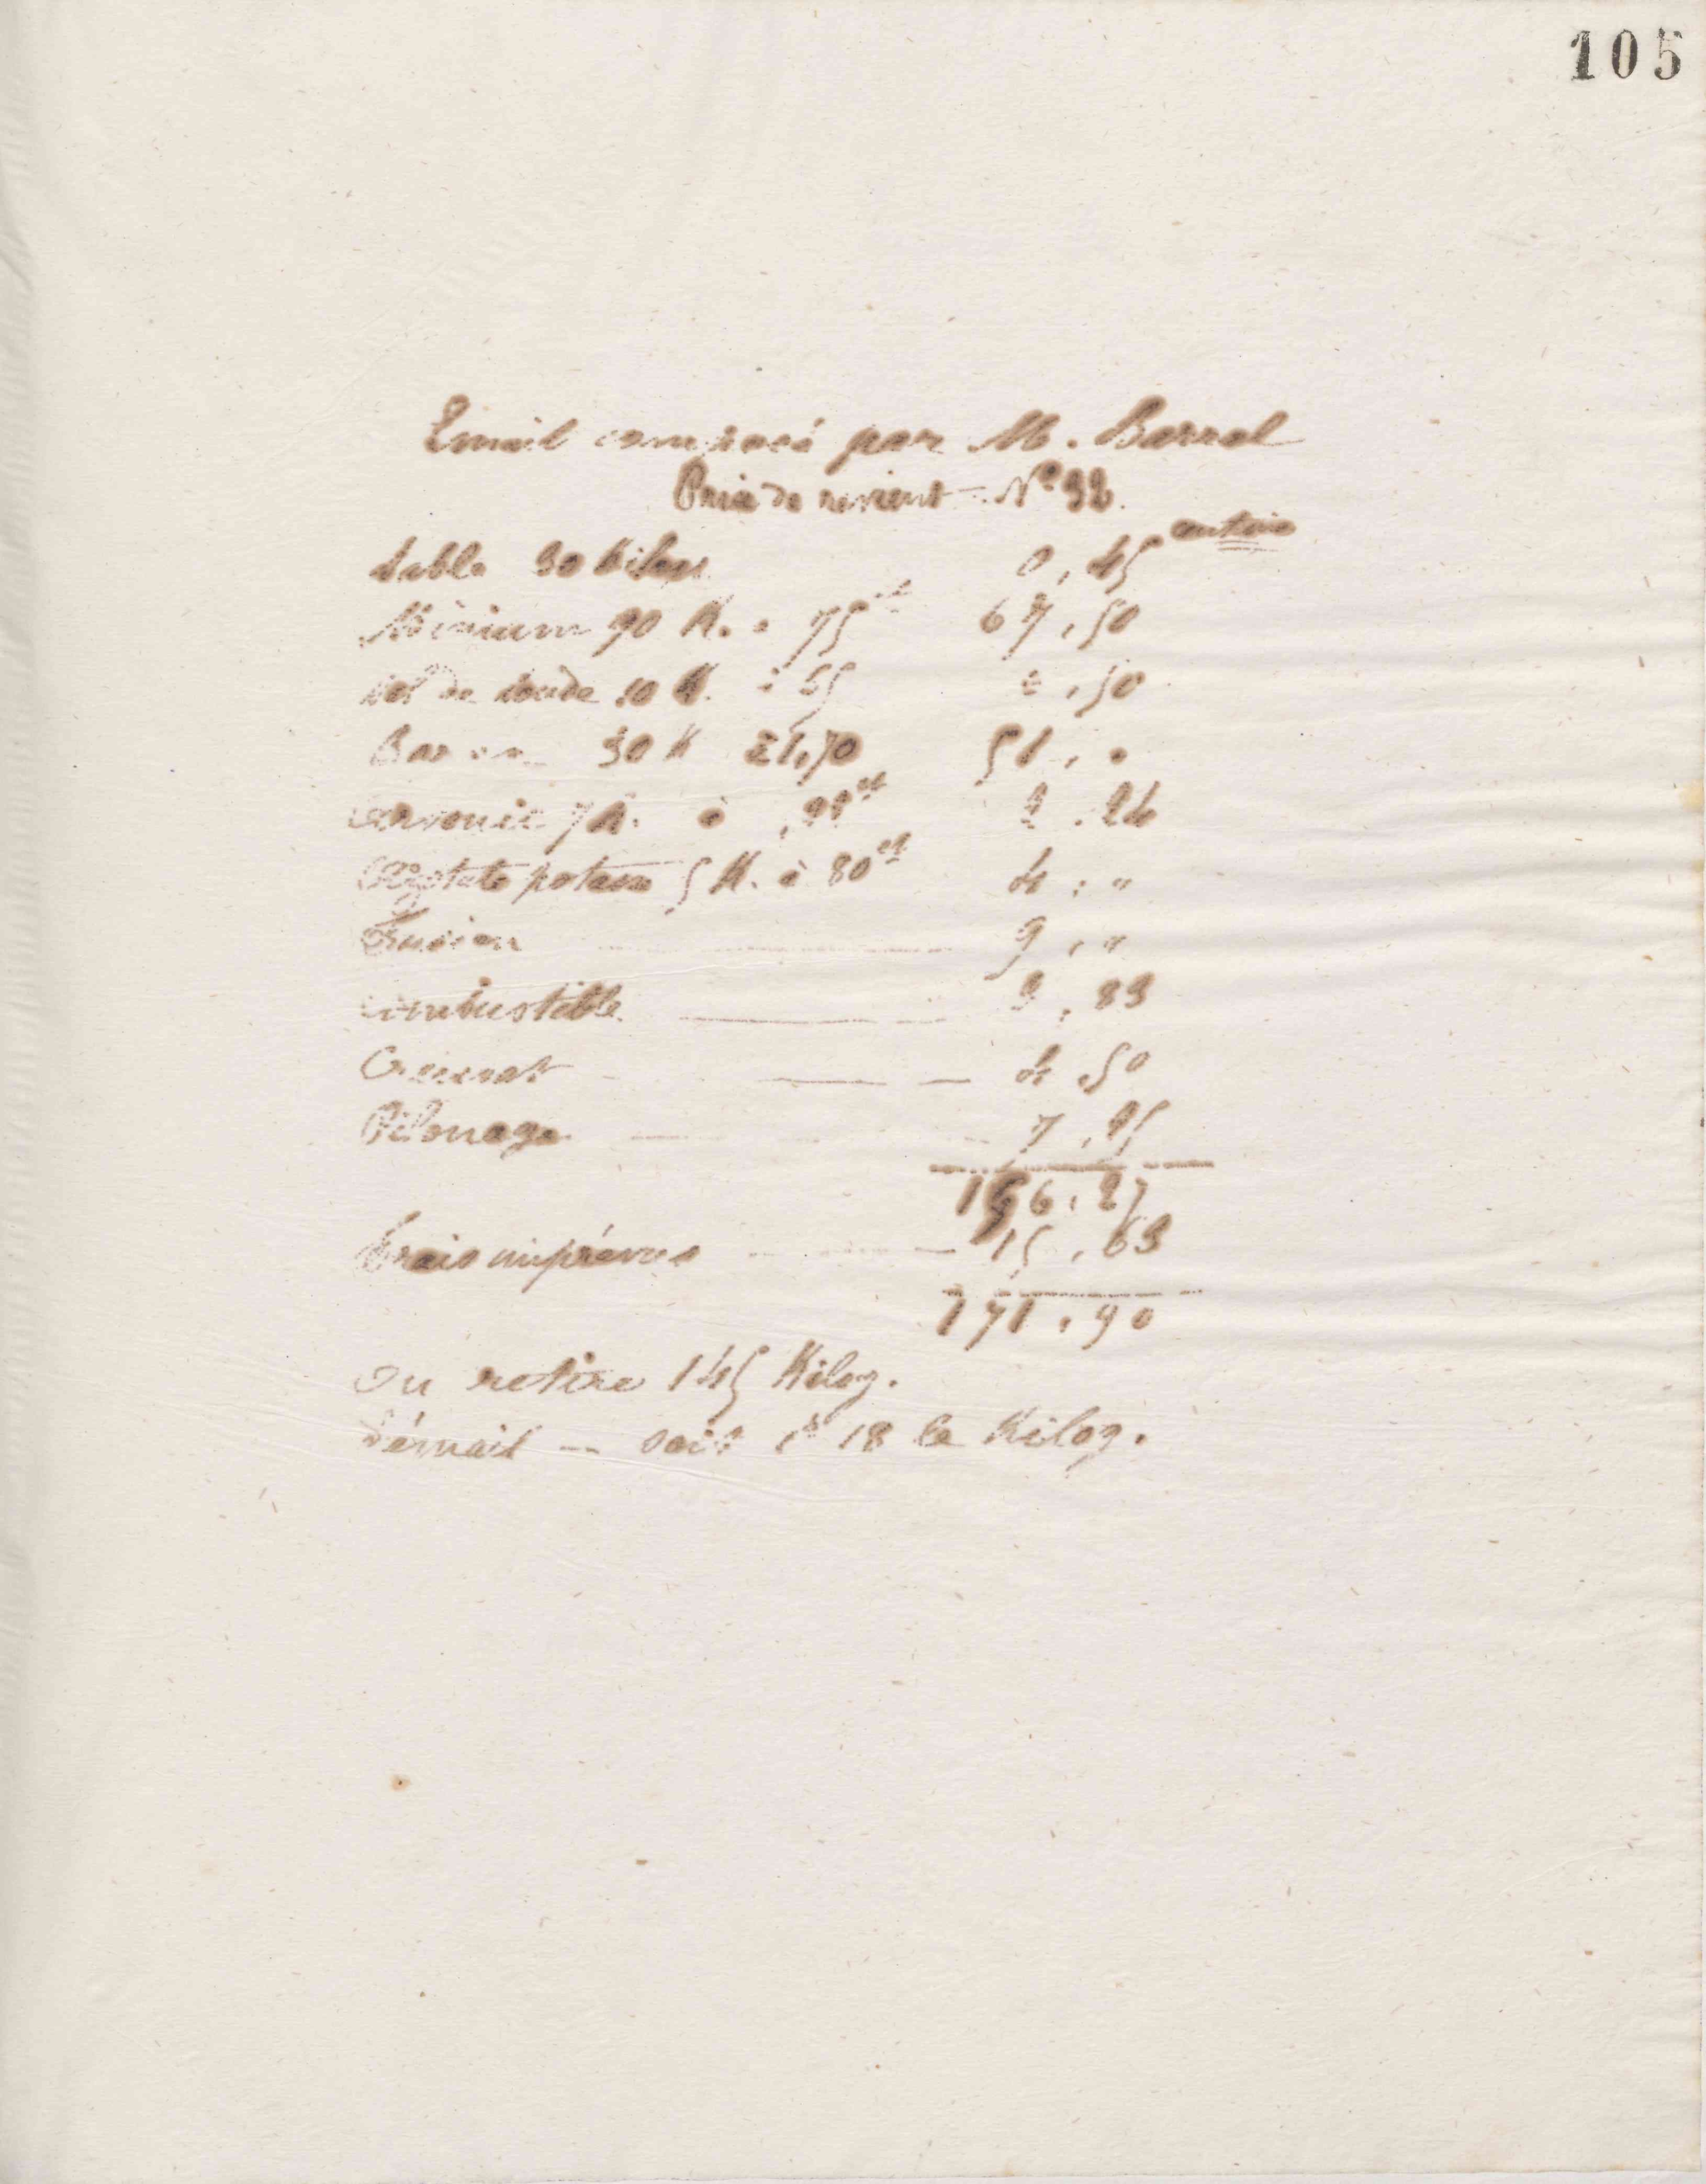 105
Email composé par M. Barral
Prix de revient - No 32.
Sable 30 Kilogs 0,45 centimes
Minium 90 K. à 75ct 67,50
Sel de soude 10 K. à 65 6,50
Borax 30 K à 1,70 51, "
Arsenic 7 K. à ,32ct 2.24
Azotate potasse 5 K. à 80ct 4, "
Fusion 9, "
Combustible 3,83
Creuset 4,50
Pilonage 7,25
156,27
Frais imprévus 15,63
171,90
On retire 145 Kilog.
d'émail - soit 1f 18 le Kilog.